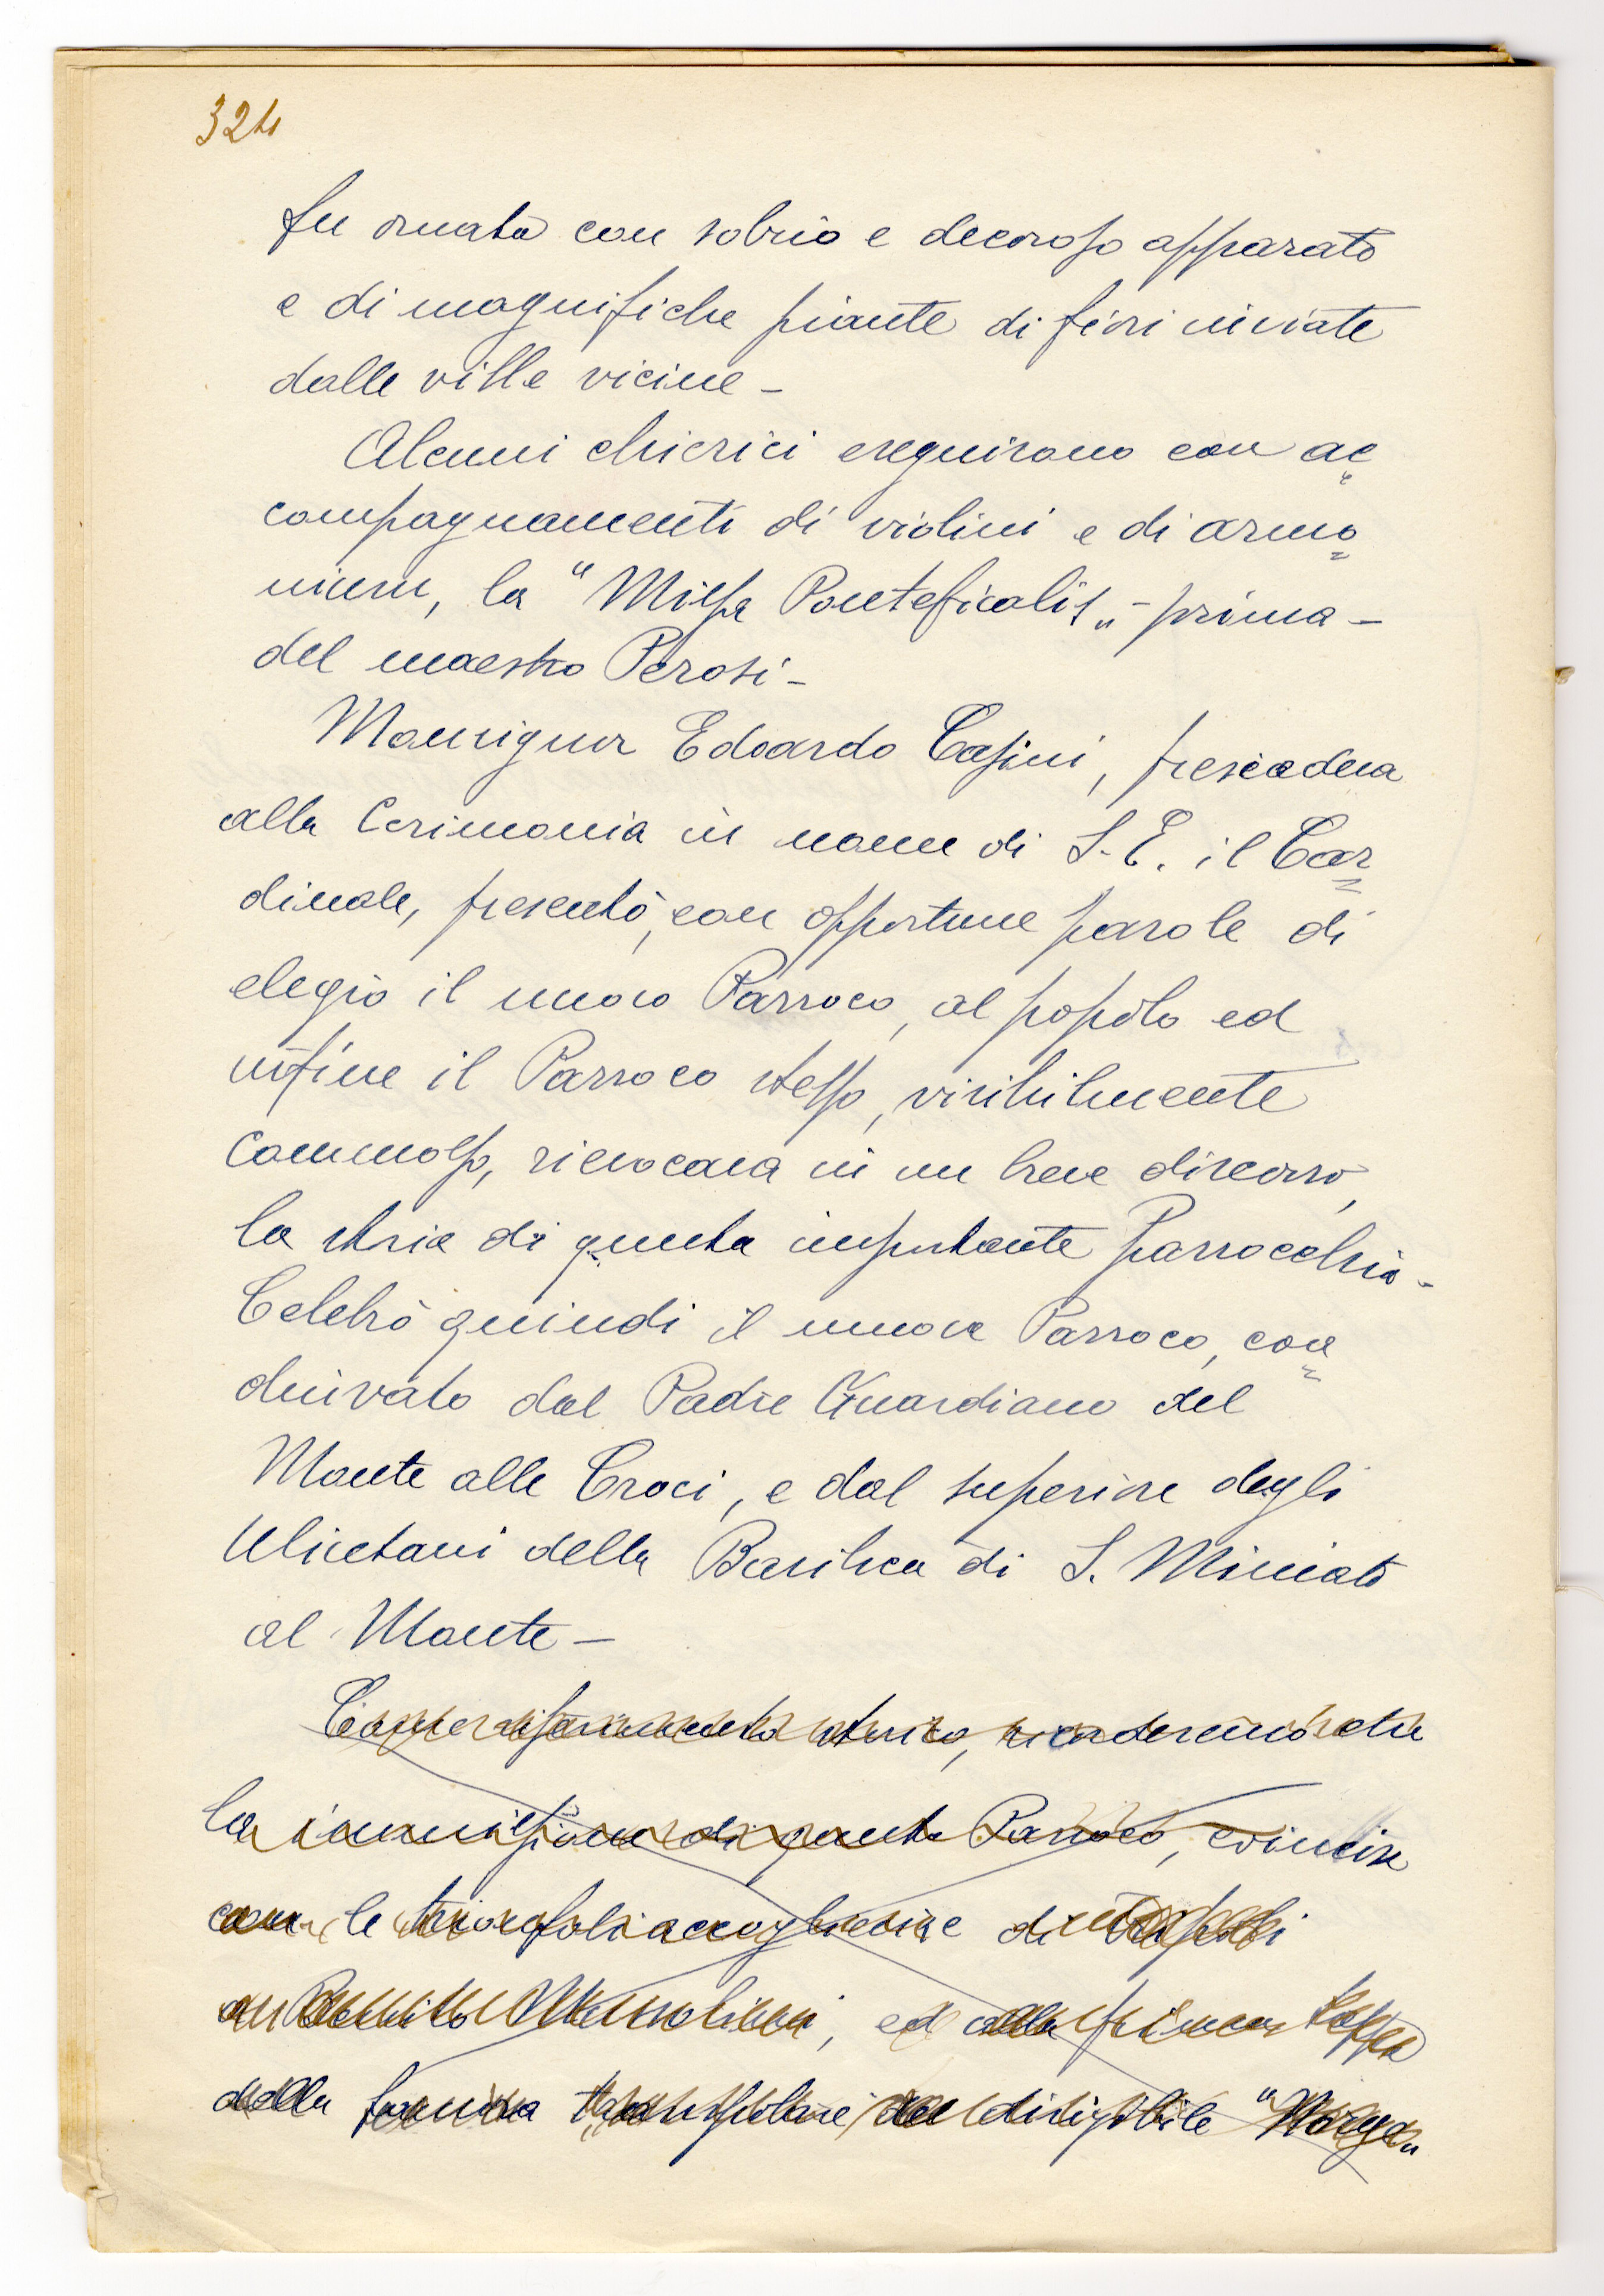 324
fu ornata con sobrio e decoroso apparato
e di magnifiche piante di fiori inviate
dalle ville vicine -
Alcuni chierici eseguirono con ac=
compagnamenti di violini e di armo=
nium, la "Missa Pontificalis" - prima -
del maestro Perosi -
Monsignor Edoardo Casini, presiedeva
alla Cerimonia in nome di S. E. il Car=
dinale, presentò, con opportune parole di
elogio il nuovo Parroco, al popolo ed
infine il Parroco stesso, visibilmente
commosso, rievocava in un breve discorso,
la storia di questa importante parrocchia -
Celebrò quindi il nuovo Parroco, coa=
diuvato dal Padre Guardiano del
Monte alle Croci, e dal superiore degli
Ulivetani della Basilica di S. Miniato
al Monte -
Come riferimento storico, ricorderemo che
la immissione di questo Parroco, coincise
con le trionfali accoglienze di
a Benito Mussolini, ed alla prima tappa
della transpolare del dirigibile "Norge"